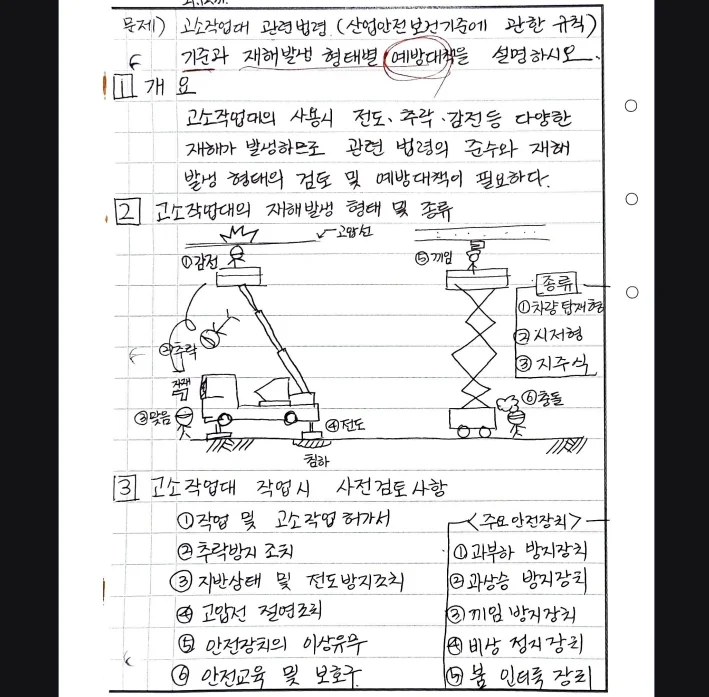 문제) 고소작업대 관련법령 (산업안전보건기준에 관한 규칙)
기준과 재해발생 형태별 예방대책을 설명하시오.
1 개 요
고소작업대의 사용시 전도, 추락, 감전등 다양한
재해가 발생하므로 관련 법령의 준수와 재해
발생 형태의 검토 및 예방대책이 필요하다.
2 고소작업대의 재해발생 형태 및 종류
고압선
①감전
⑤끼임
종류
①차량탑재형
②시저형
③지주식
②추락
자재
③맞음
④전도
⑥충돌
침하
3 고소작업대 작업시 사전검토사항
①작업 및 고소작업 허가서
②추락방지 조치
③지반상태 및 전도방지조치
④고압선 절연조치
⑤안전장치의 이상유무
⑥안전교육 및 보호구
<주요안전장치>
①과부하 방지장치
②과상승 방지장치
③끼임 방지장치
④비상 정지장치
⑤붐 인터록 장치